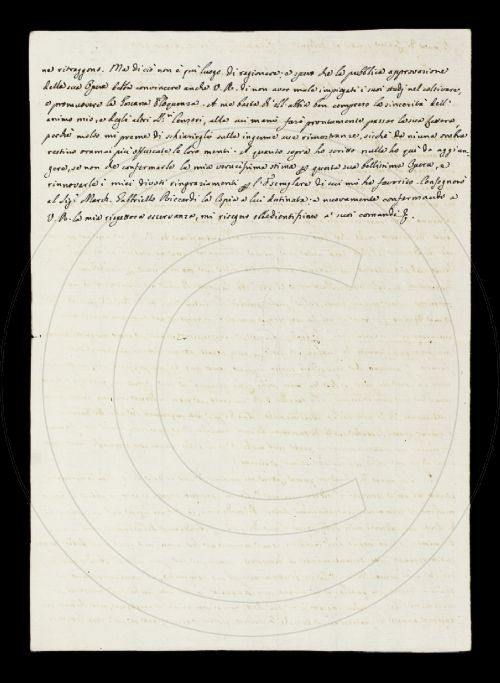 ne ritraggono. Ma di ciò non è più luogo di ragionare, e spero che la pubblica approvazione
della sua Opera debba convincere anche V. R. di non aver male impiegati i suoi studj nel coltivare,
e promuovere la Toscana Eloquenza. A me basta ch'Ell'abbia ben compreso la sincerità dell'
animo mio, e degli altri Censori, alla cui mano farò prontamente passar la sua lettera,
poiche molto mi preme di schiarirgli sulla ingenue sue rimostranze, sicchè da niuna ombra
restino oramai più offuscate le loro menti. A quanto sopra ho scritto nulla ho qui da aggiun-
gere, se non che confermarle la mia veracissima stima per questa sua bellissima Opera, e
rinnovarle i miei divoti ringraziamenti per l'Esemplare di cui mi ha favorito. Consegnerò
al Sigr. March. Gabbriello Riccardi la Copia a lui destinata: e nuovamente confermando a
V. R. la mia rispettosa osservanza, mi rassegno obbedientissimo a' suoi comandi